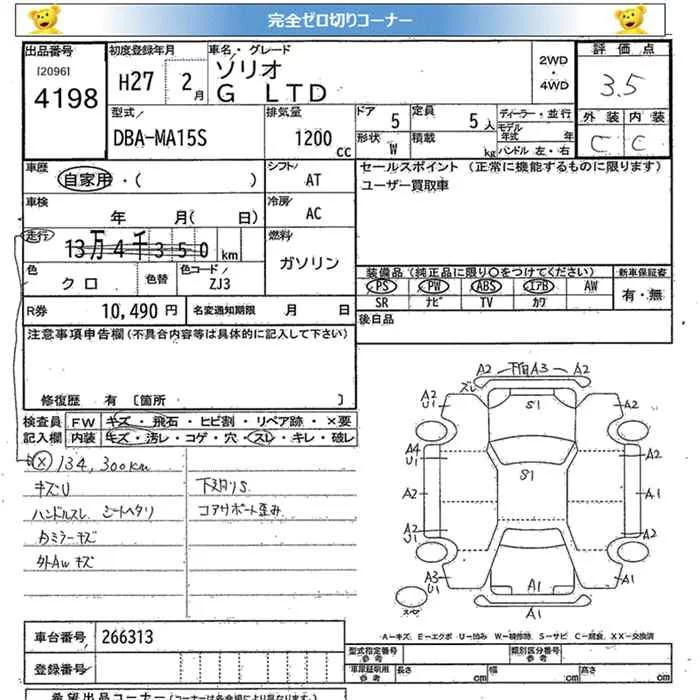 完全ゼロ切りコーナー
出品番号
[2096]
4198
初度登録年月
H27 2月
車名・グレード
ソリオ
G LTD
2WD
・
4WD
評価点
3.5
外装 内装
C C
型式/
DBA-MA15S
排気量
1200 CC
ドア 5
定員 5人
形状 W
積載 kg
ディーラー・並行
モデル年式 年
ハンドル 左・右
車歴
自家用・( )
シフト/
AT
セールスポイント (正常に機能するものに限ります)
ユーザー買取車
車検
年 月( 日)
冷房/
AC
走行
13万4千350km
燃料/
ガソリン
色
クロ
色替
色コード/
ZJ3
装備品 (純正品に限り○をつけてください)
PS PW ABS エアB AW
SR ナビ TV カワ
新車保証書
有・無
R券 10,490 円
名変通知期限 月 日
後日品
注意事項申告欄(不具合内容等は具体的に記入して下さい)
修復歴 有 〔箇所 〕
検査員記入欄
FW キズ・飛石・ヒビ割・リペア跡・×要
内装 キズ・汚レ・コゲ・穴・スレ・キレ・破レ
× 134,300km
キズU
ハンドルスレ シートヘタリ
カラミラーキズ
外Aw キズ
下廻りS
コアサポート歪み
A2 下回A3 A2
ズレ
A2
U1
S1
A2
A4
U1
S1
A2
A2
A1
A2
U1
A2
A3
U1
A1
A1
A1
スペ
A-キズ、E-エクボ U-凹み W-補修跡、S-サビ C-腐食、XX-交換済
車台番号 266313
登録番号
型式指定番号
参考
類別区分番号
参考
車庫証明用
参考
長さ cm
幅 cm
高さ cm
希望出品コーナー(コーナーは各会場により異なります)